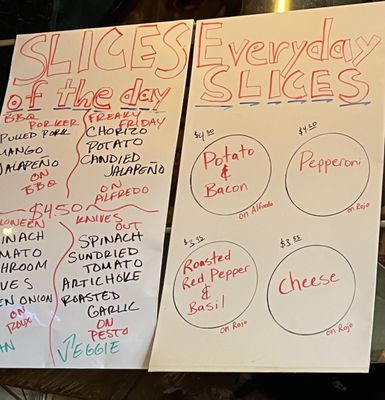 SLICES
of the day
BBQ
PORKER
PULLED PORK
MANGO
JALAPEÑO
ON
BBQ
FREAKY
FRIDAY
CHORIZO
POTATO
CANDIED
JALAPEÑO
ON
ALFREDO
$4.50
KNIVES
OUT
SPINACH
SUNDRIED
TOMATO
ARTICHOKE
ROASTED
GARLIC
ON
PESTO
VEGGIE
ON
ROUX
Everyday
SLICES
$4.50
Potato
&
Bacon
on Alfredo
$4.50
Pepperoni
on Rojo
$3.95
Roasted
Red Pepper
&
Basil
on Rojo
$3.95
Cheese
on Rojo